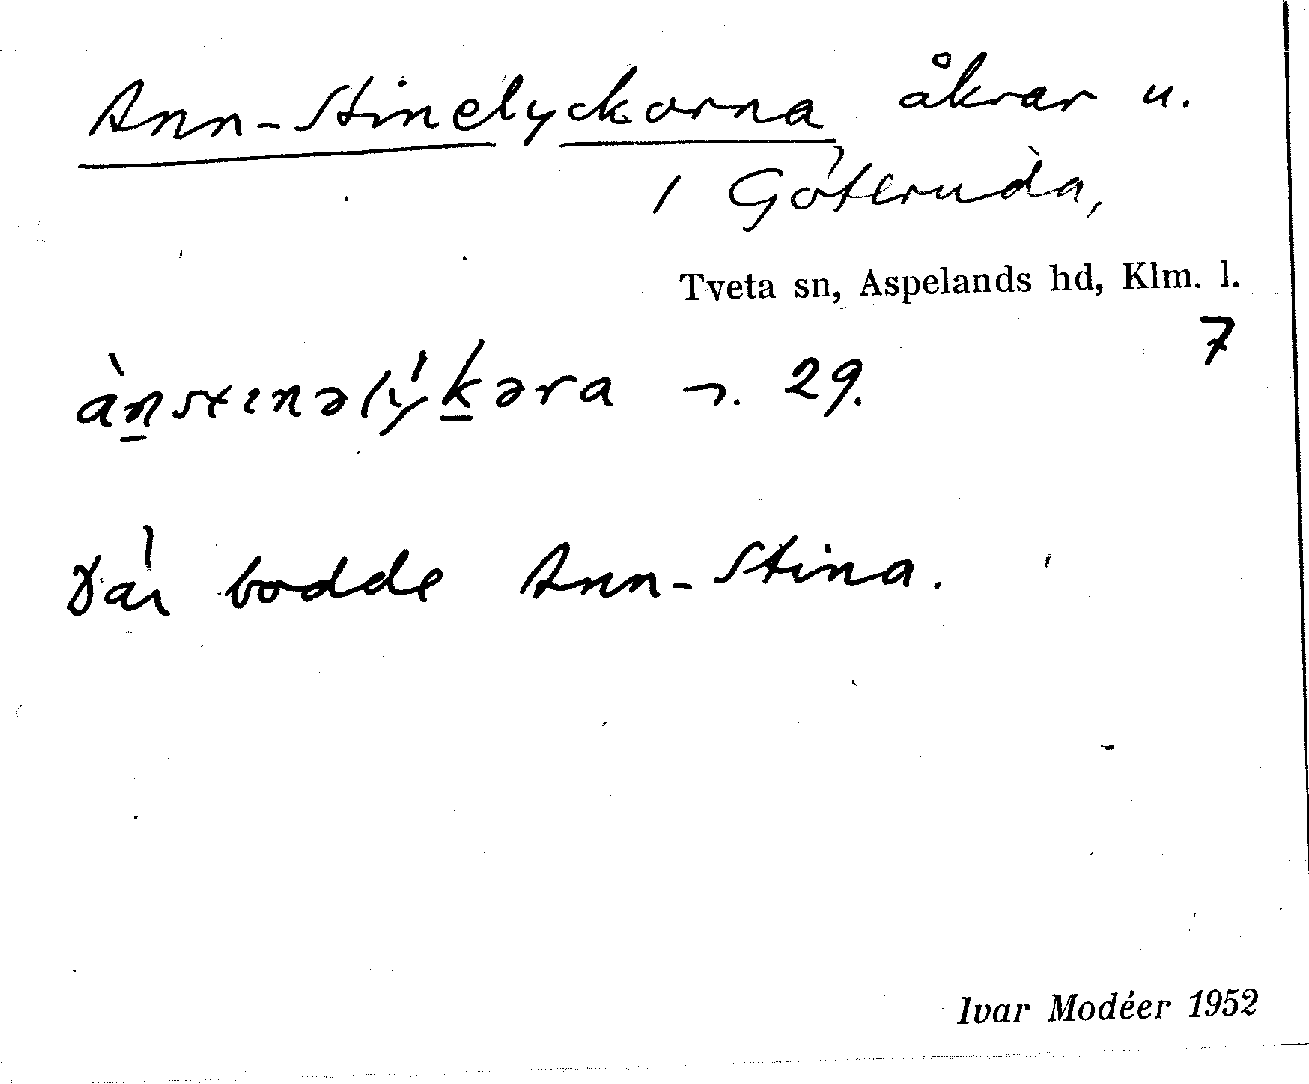 Ann-Stinelyckorna åkrar u.
1 Göteruda,
Tveta sn, Aspelands hd, Klm. l.
7
29.
Där bodde Ann-Stina.
Ivar Modéer 1952